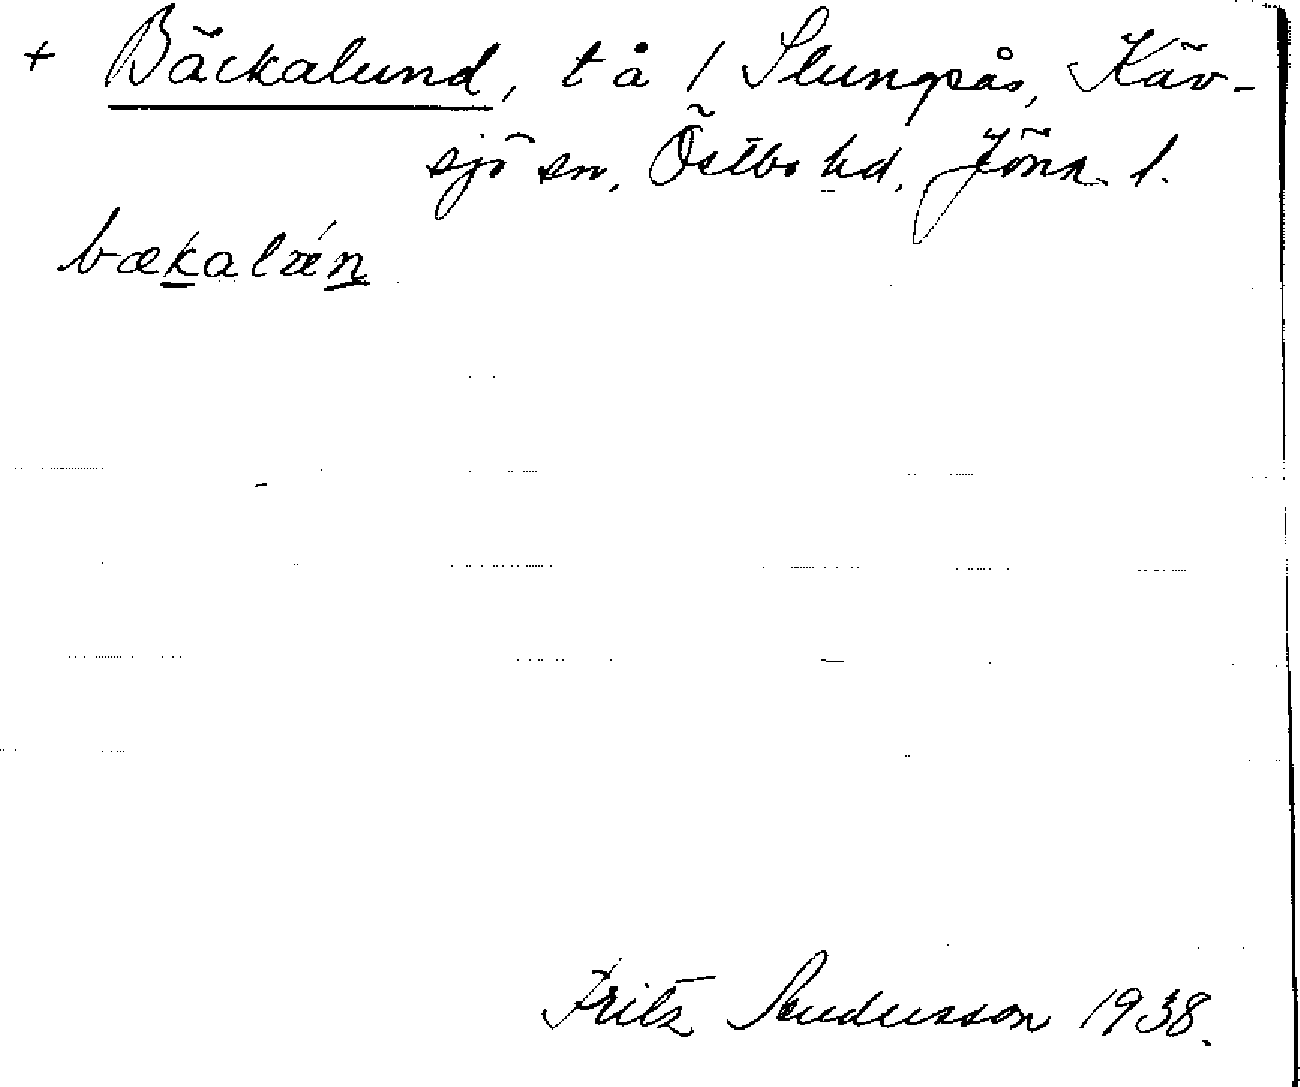 + Bäckalund, t å / Slungsås, Käv-
sjö sn, Östbo hd, Jönk l.
bækalǽn
Fritz Andersson 1938.